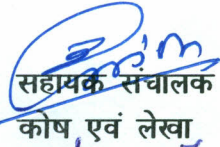 सहायक संचालक
कोष एवं लेखा